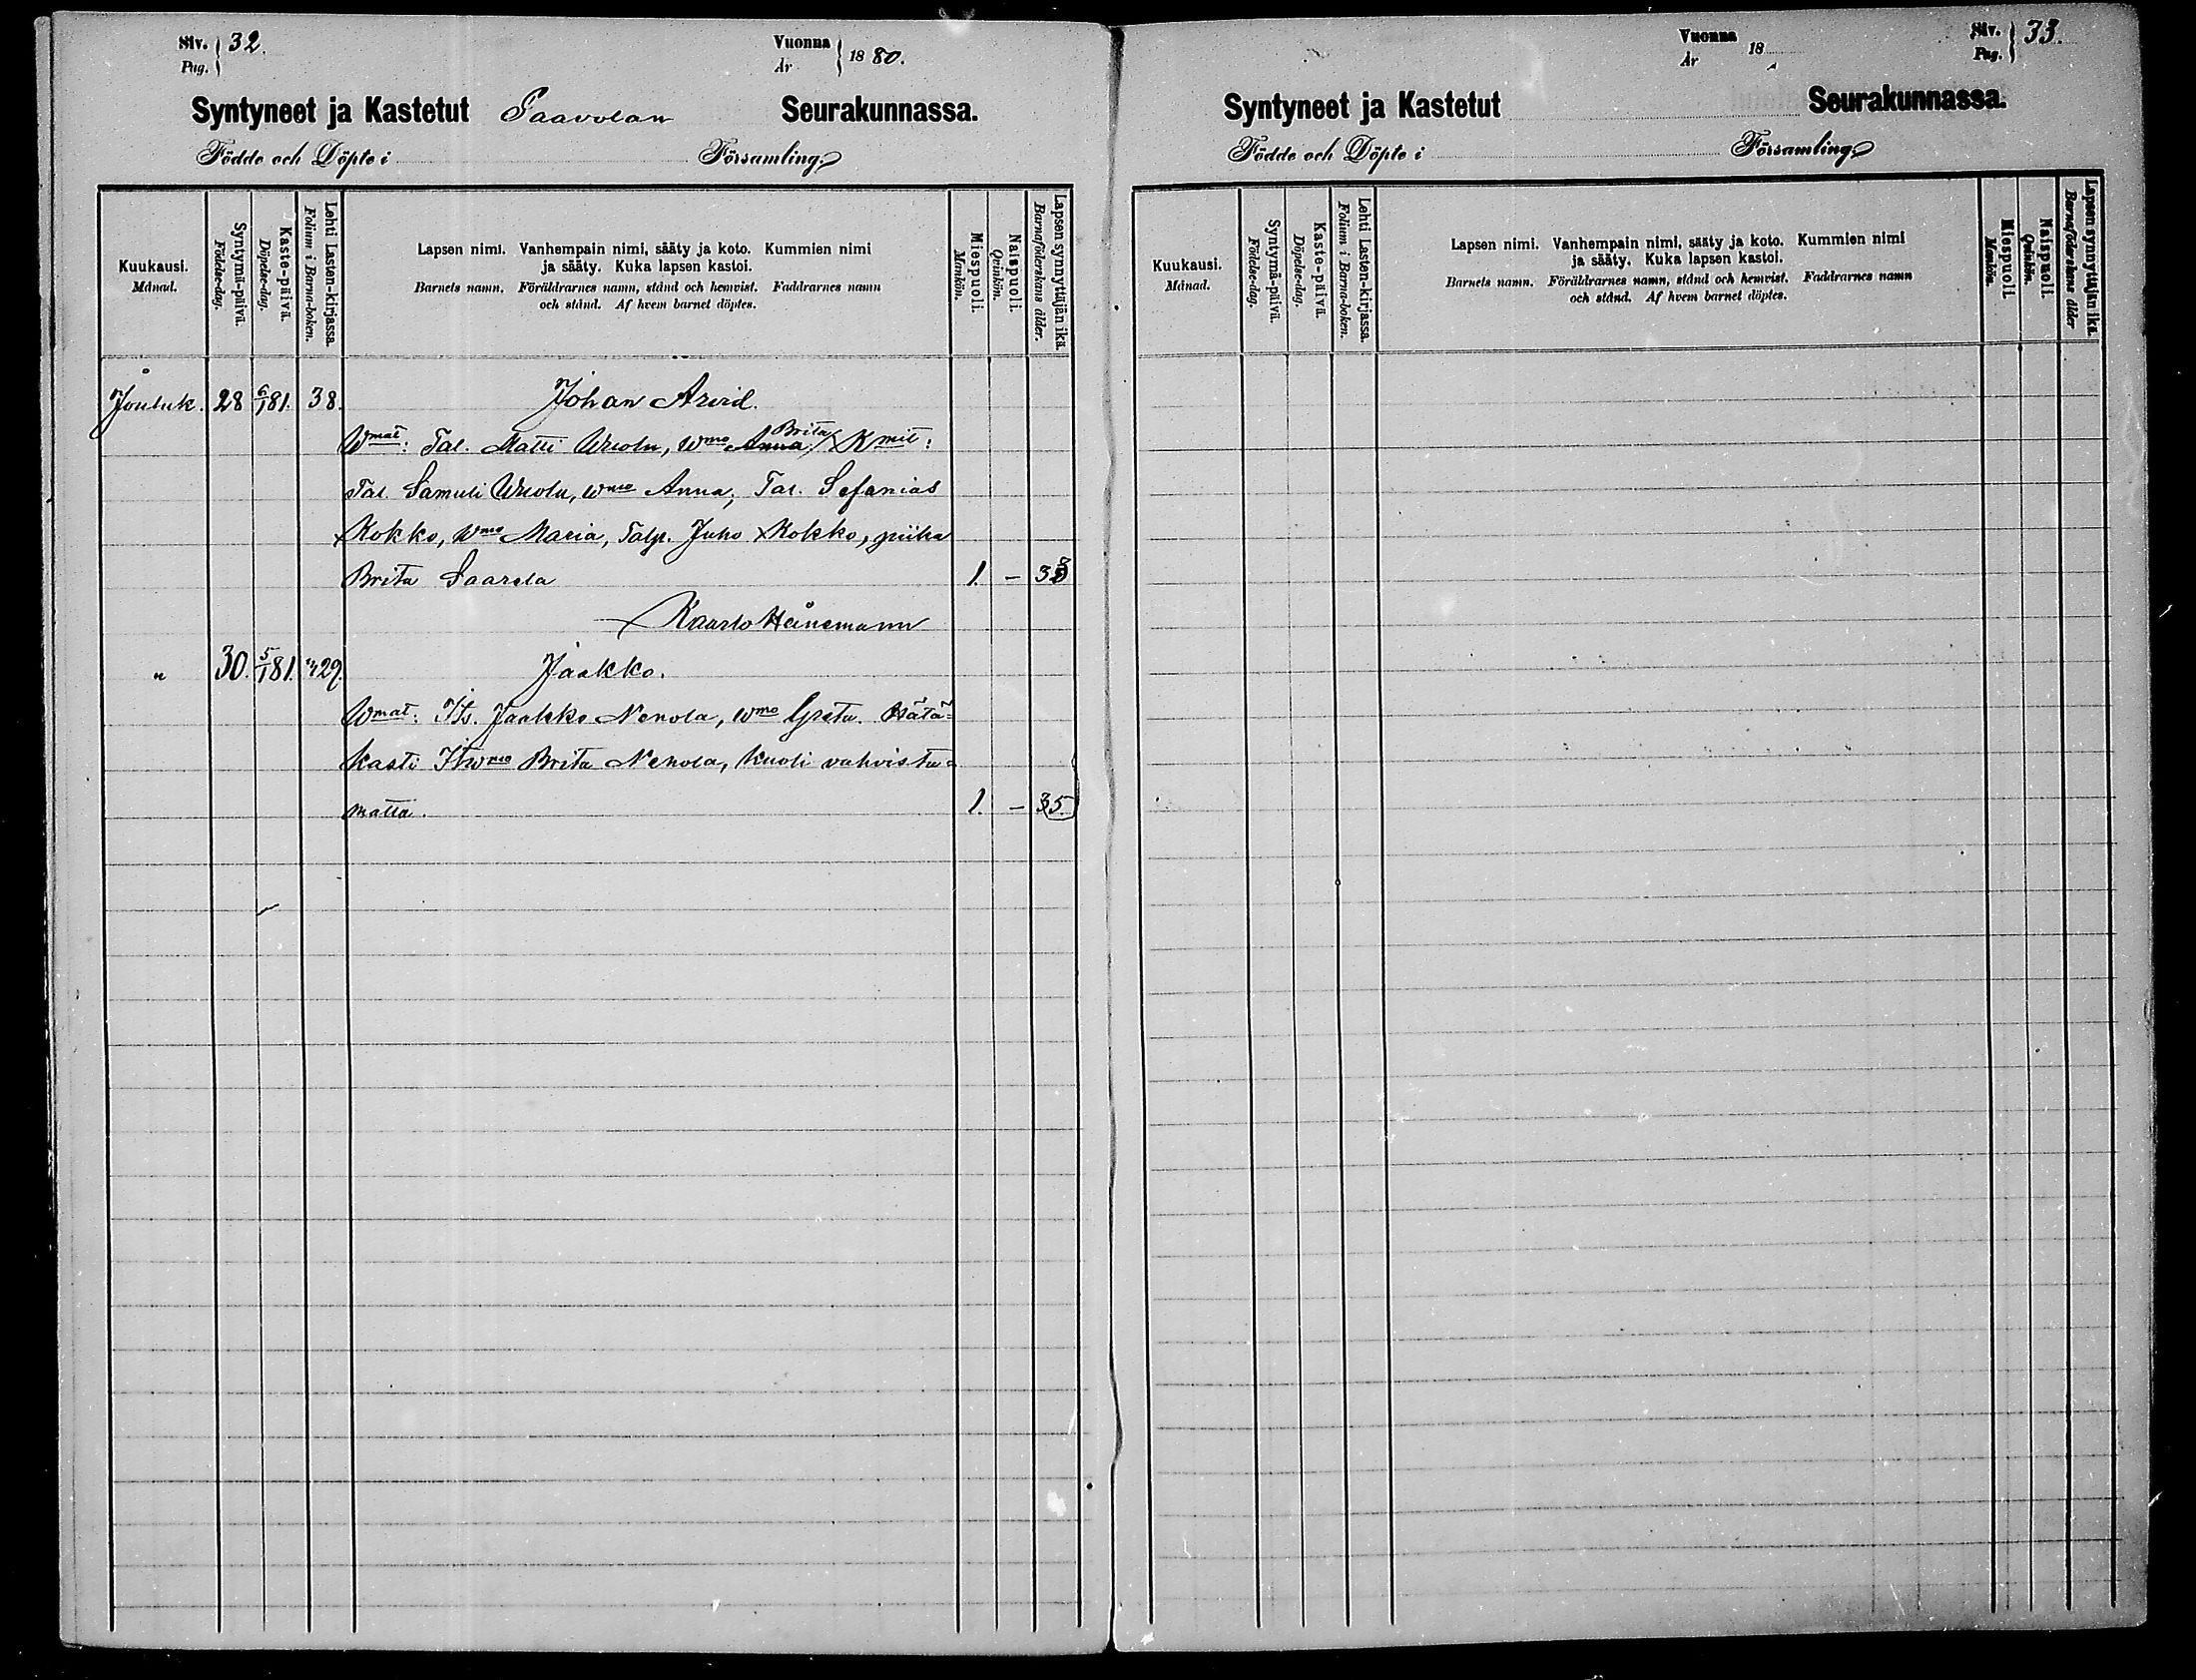 Siv. 32.
Pag.
Vuonna 1880.
År
Syntyneet ja Kastetut Paavolan Seurakunnassa.
Födde och Döpte i Församling.
Kuukausi.
Månad.
Syntymä-päivä.
Födelse-dag.
Kaste-päivä.
Döpelse-dag.
Lehti Lasten-kirjassa.
Folium i Barna-boken.
Lapsen nimi. Vanhempain nimi, sääty ja koto. Kummien nimi
ja sääty. Kuka lapsen kastoi.
Barnets namn. Föräldrarnes namn, stånd och hemvist. Faddrarnes namn
och stånd. Af hvem barnet döptes.
Miespuoli.
Mankön.
Naispuoli.
Qvinkön.
Lapsen synnyttäjän ikä.
Barnaföderskans ålder.
Jouluk. 28 6/1 81. 38. Johan Arvid.
Wmat: Tal. Matti Ursolu, wmo Anna Brita / Kmit:
Tal. Samuli Ursolu, wmo Anna, Tal. Sefanias
Kokko, Wmo Maria, Talp. Juho Kokko, piika
Brita Saarela 1. –
Kaarlo Heinemann
" 30. 5/1 81. 29. Jaakko.
Wmat: Its. Jaakko Nenola, wmo Greta. Hätä-
kasti Itswmo Brita Nenola, kuoli vahvistu-
matta. 1. – 35.
Vuonna 18
År
Siv. 33.
Pag.
Syntyneet ja Kastetut Seurakunnassa.
Födde och Döpte i Församling.
Kuukausi.
Månad.
Syntymä-päivä.
Födelse-dag.
Kaste-päivä.
Döpelse-dag.
Lehti Lasten-kirjassa.
Folium i Barna-boken.
Lapsen nimi. Vanhempain nimi, sääty ja koto. Kummien nimi
ja sääty. Kuka lapsen kastoi.
Barnets namn. Föräldrarnes namn, stånd och hemvist. Faddrarnes namn
och stånd. Af hvem barnet döptes.
Miespuoli.
Mankön.
Naispuoli.
Qvinkön.
Lapsen synnyttäjän ikä.
Barnaföderskans ålder